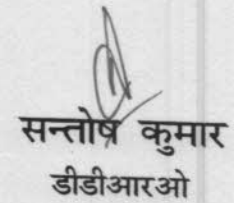 सन्तोष कुमार
डीडीआरओ